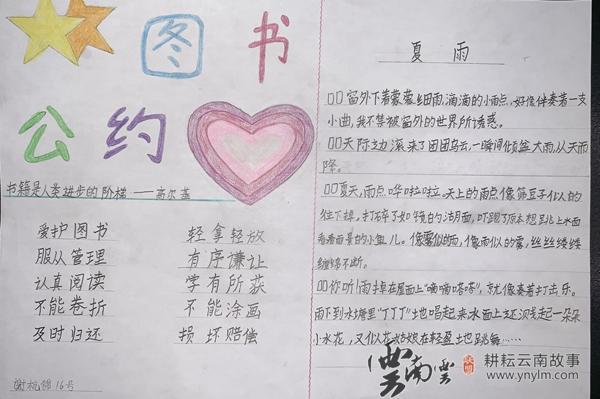 图书
公约
书籍是人类进步的阶梯——高尔基
爱护图书 轻拿轻放
服从管理 有序谦让
认真阅读 学有所获
不能卷折 不能涂画
及时归还 损坏赔偿
16号
夏雨
窗外下着蒙蒙细雨,滴滴的小雨点,好像伴奏着一支
小曲,我不禁被窗外的世界所诱惑。
天际边滚来了团团乌云,一瞬间倾盆大雨,从天而
降。
夏天,雨点哗啦啦。天上的雨点像筛豆子似的
往下掉,打碎了如镜的湖面,吓跑了原本想跳上水面
看看面景的小鱼儿。像雾似的雨,像雨似的雾,丝丝缕缕
缠绵不断。
你听!雨掉在屋面上"嘀嘀嗒嗒",就像奏着打击乐。
雨下到水塘里"丁丁丁"地唱起来水面上还泛起一朵朵
小水花,又似花姑娘在轻盈地跳舞……
云南云
耕耘云南故事
www.ynylm.com